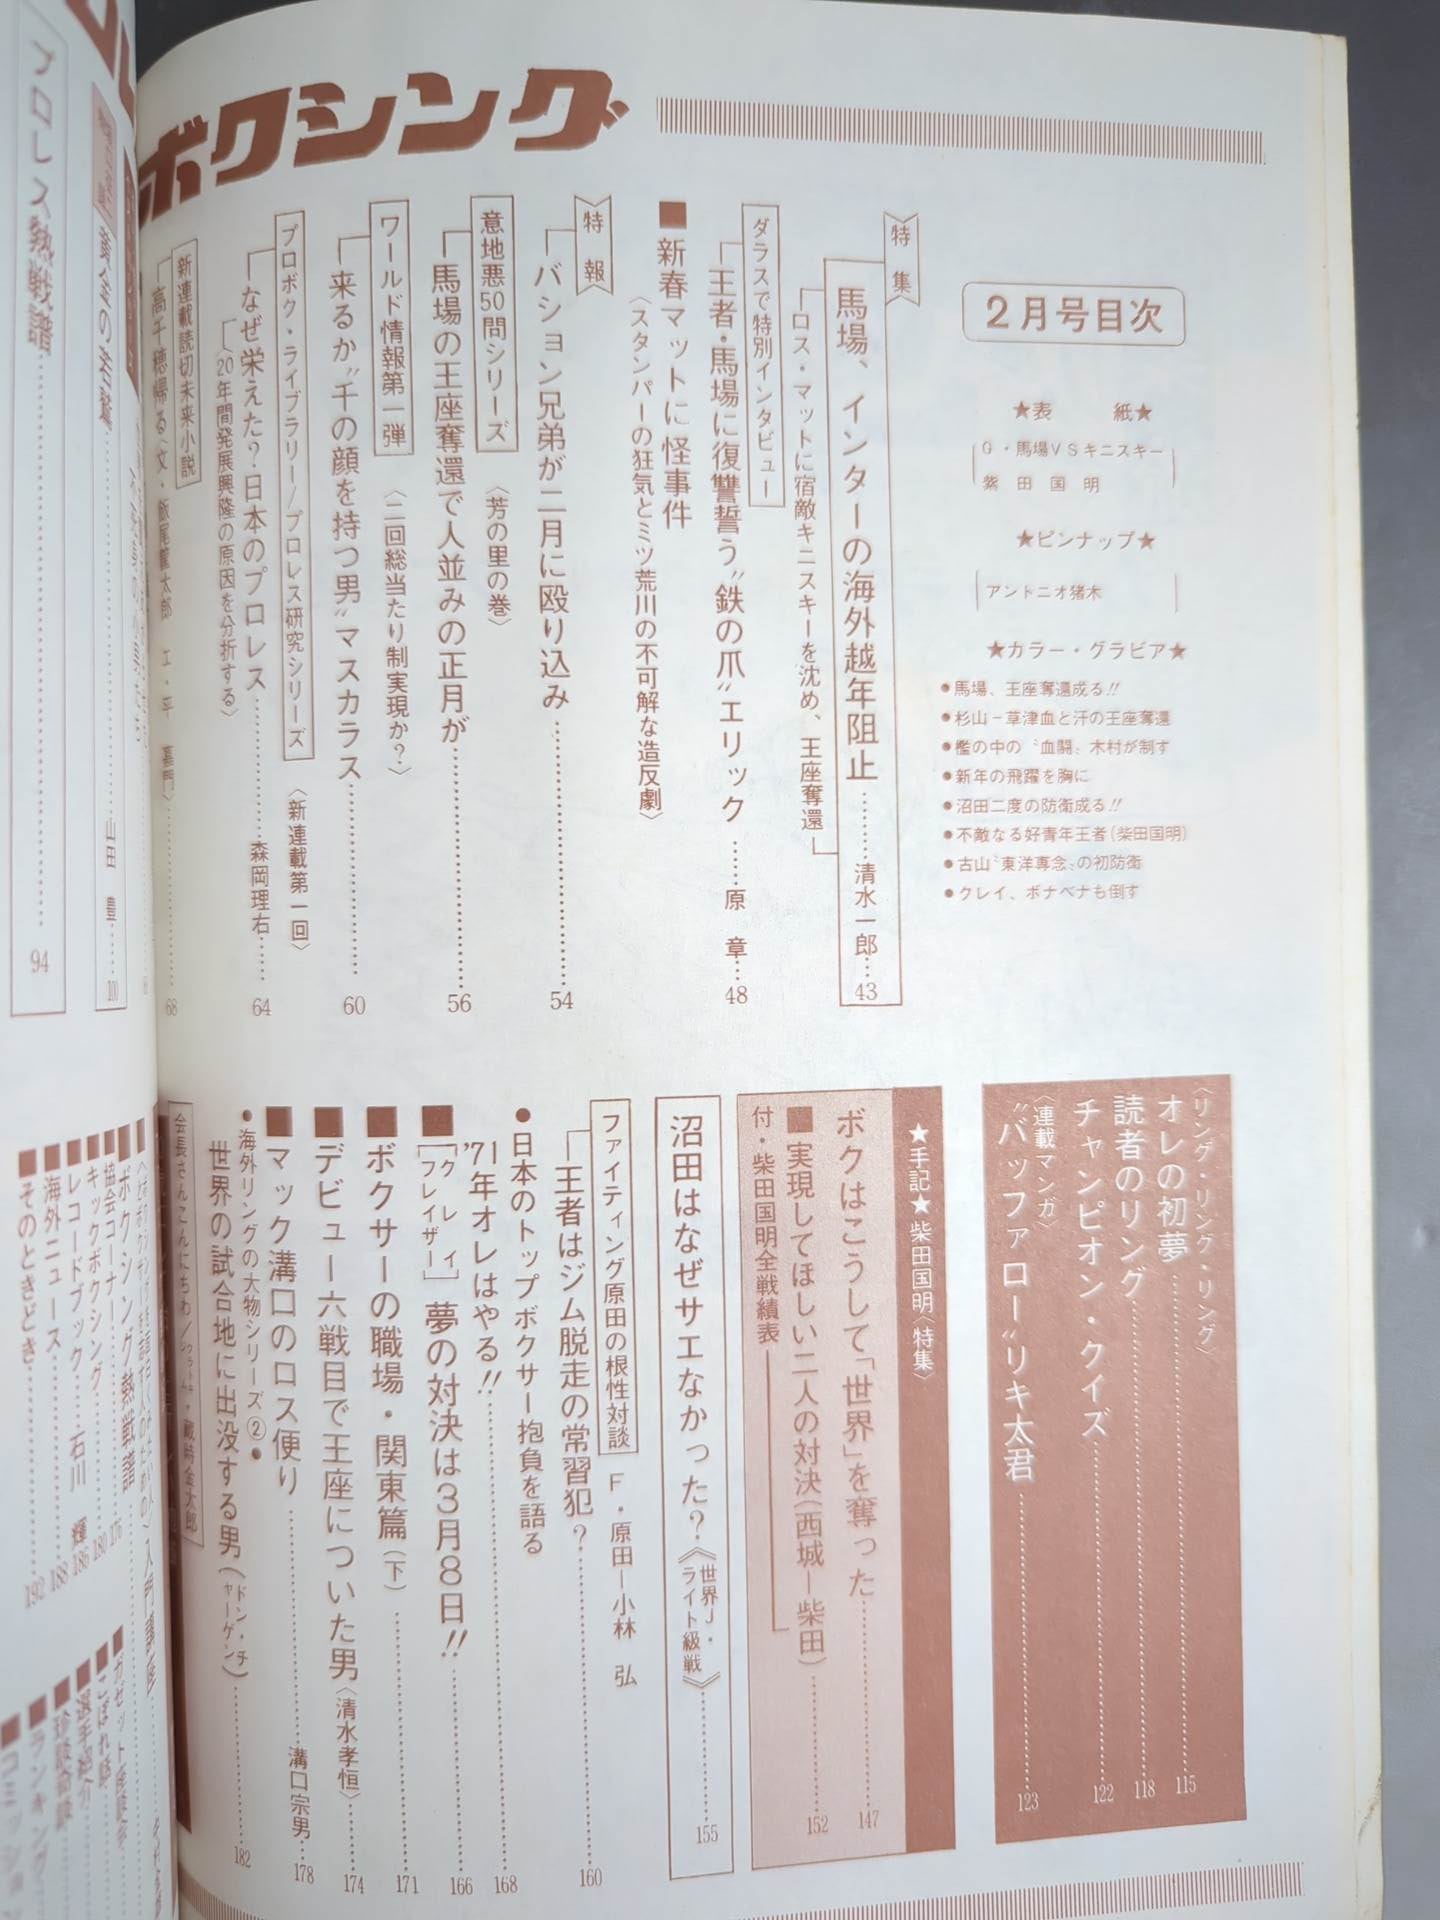 ボクシング
2月号目次
★表紙★
G・馬場VSキニスキー
柴田国明
★ピンナップ★
アントニオ猪木
★カラー・グラビア★
●馬場、王座奪還成る!!
●杉山−草津血と汗の王座奪還
●檻の中の〝血闘〟木村が制す
●新年の飛躍を胸に
●沼田二度の防衛成る!!
●不敵なる好青年王者(柴田国明)
●古山〝東洋専念〟の初防衛
●クレイ、ボナベナも倒す
特集
馬場、インターの海外越年阻止……清水一郎…43
ロス・マットに宿敵キニスキーを沈め、王座奪還
ダラスで特別インタビュー
王者・馬場に復讐誓う〝鉄の爪〟エリック……原章…48
■新春マットに怪事件
〈スタンパーの狂気とミツ荒川の不可解な造反劇〉
特報
バション兄弟が二月に殴り込み……54
意地悪50問シリーズ〈芳の里の巻〉
馬場の王座奪還で人並みの正月が……56
ワールド情報第一弾〈二回総当たり制実現か?〉
来るか〝千の顔を持つ男〟マスカラス……60
プロボク・ライブラリー/プロレス研究シリーズ〈新連載第一回〉
なぜ栄えた?日本のプロレス……森岡理右……64
〈20年間発展興隆の原因を分析する〉
新連載読切未来小説
高千穂帰る〈文・飯尾 太郎 エ・平 門〉……68
〈リング・リング・リング〉
オレの初夢……115
読者のリング……118
チャンピオン・クイズ……122
〈連載マンガ〉
〝バッファロー〟リキ太君……123
★手記★柴田国明〈特集〉
ボクはこうして「世界」を奪った……147
■実現してほしい二人の対決(西城―柴田)……152
付・柴田国明全戦績表
沼田はなぜサエなかった?《世界J・ライト級戦》……155
ファイティング原田の根性対談 F・原田―小林 弘
王者はジム脱走の常習犯?……160
●日本のトップボクサー抱負を語る
'71年オレはやる!!……168
■[クレイ フレイザー]夢の対決は3月8日!!……166
■ボクサーの職場・関東篇(下)……171
■デビュー六戦目で王座についた男〈清水孝恒〉……174
■マック溝口のロス便り……溝口宗男…178
●海外リングの大物シリーズ②●
世界の試合地に出没する男(ドン・チャーゲン)……182
会長さんこんにちわ/
プロレス熱戦譜……94
黄金の若鷲……山田 豊……200
■ボクシング熱戦譜
■協会コーナー……176
■キックボクシング……180
■レコードブック……石川 輝…186
■海外ニュース……188
■そのときどき……192
■こぼれ話
■選手紹介
■ランキング